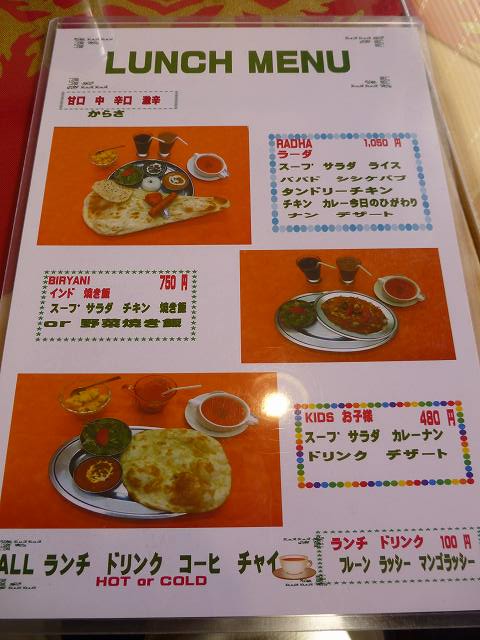 LUNCH MENU
甘口 中 辛口 激辛
からさ
RADHA 1,050 円
ラーダ
スープ サラダ ライス
パパド シシケバブ
タンドリーチキン
チキン カレー今日のひがわり
ナン デザート
BIRYANI 750 円
インド 焼き飯
スープ サラダ チキン 焼き飯
or 野菜焼き飯
KIDS お子様 480 円
スープ サラダ カレーナン
ドリンク デザート
ALL ランチ ドリンク コーヒ チャイ
HOT or COLD
ランチ ドリンク 100 円
プレーン ラッシー マンゴラッシー